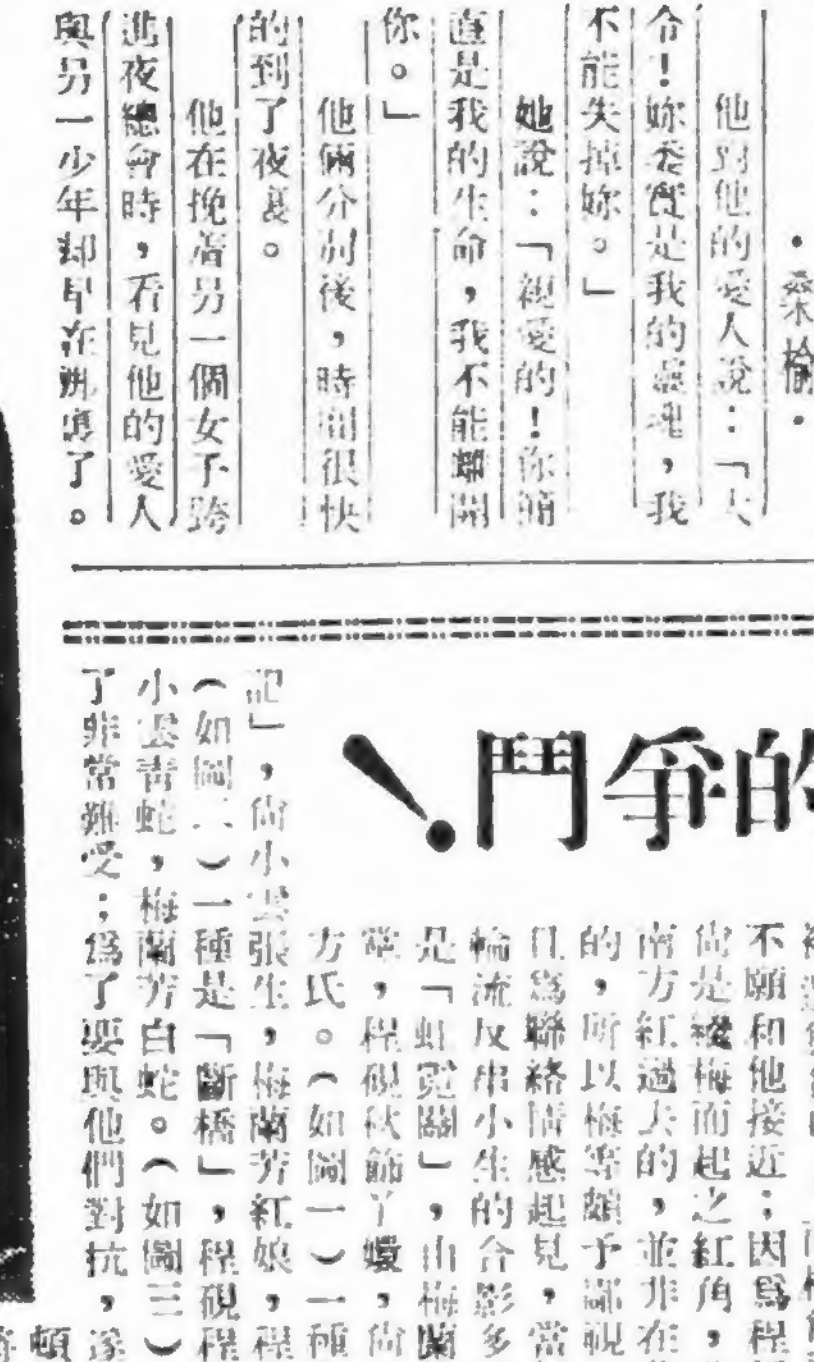 •桑榆•
他對他的愛人說：「大
令！妳委實是我的靈魂，我
不能失掉妳。」
她說：「親愛的！你簡
直是我的生命，我不能離開
你。」
他倆分別後，時間很快
的到了夜裏。
他在挽着另一個女子跨
進夜總會時，看見他的愛人
與另一少年却早在那裏了。
的爭鬥！
不願和他接近；因爲程
尙是繼梅而起之紅角，
南方紅過大的，並非在
的，所以梅等頗予鄙視
且爲聯絡情感起見，當
輪流反串小生的合影多
是「虹霓關」，由梅蘭
，程硯秋飾丫鬟，尙
方氏。（如圖一）一種
記」，尙小雲張生，梅蘭芳紅娘，程
（如圖二）一種是「斷橋」，程硯程
小雲靑蛇，梅蘭芳白蛇。（如圖三）
了非常難受；爲了要與他們對抗，遂
頓